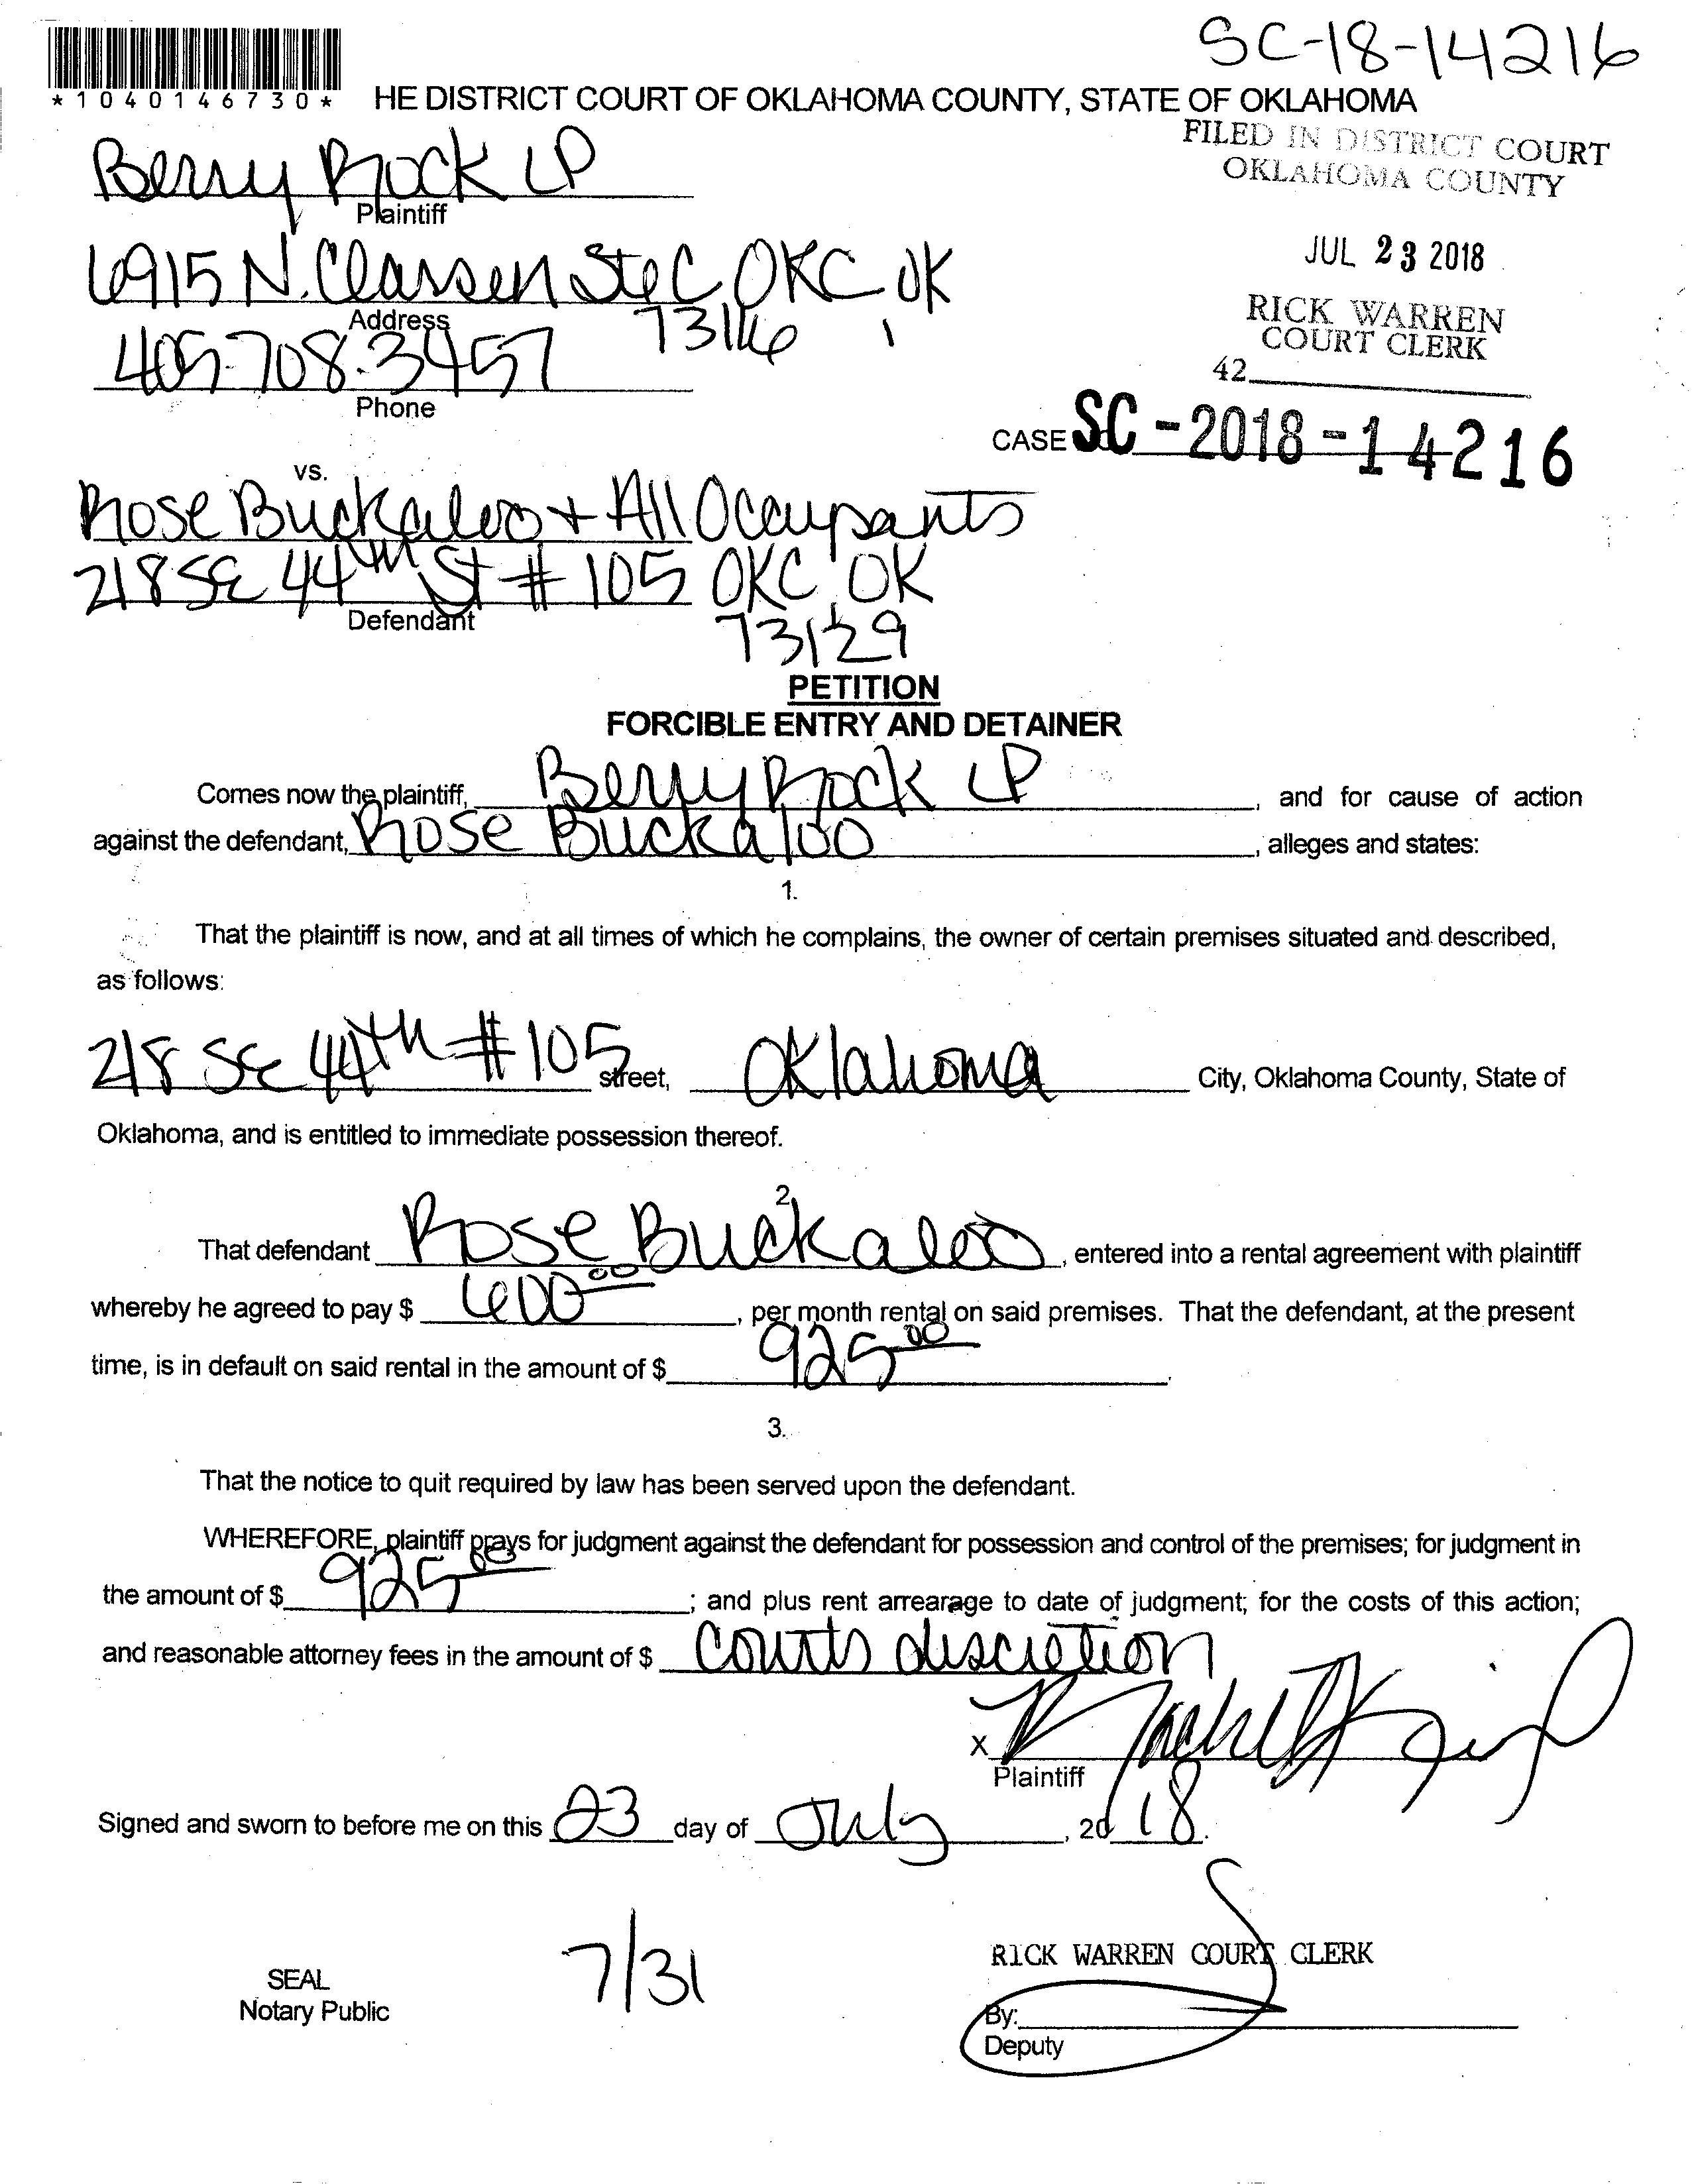 SC-18-14216
*1040146730*
HE DISTRICT COURT OF OKLAHOMA COUNTY, STATE OF OKLAHOMA
FILED IN DISTRICT COURT
OKLAHOMA COUNTY
Berry Rock LP
Plaintiff
JUL 23 2018
6915 N. Classen Ste C, OKC, OK
73116
Address
RICK WARREN
COURT CLERK
405-708-3457
Phone
42
CASE SC-2018-14216
vs.
Rose Buckaloo + All Occupants
218 SE 44th St # 105 OKC, OK
73129
Defendant
PETITION
FORCIBLE ENTRY AND DETAINER
Comes now the plaintiff, Berry Rock LP, and for cause of action
against the defendant, Rose Buckaloo, alleges and states:
1.
That the plaintiff is now, and at all times of which he complains, the owner of certain premises situated and described,
as follows:
218 SE 44th #105 street, Oklahoma City, Oklahoma County, State of
Oklahoma, and is entitled to immediate possession thereof.
2.
That defendant Rose Buckaloo, entered into a rental agreement with plaintiff
whereby he agreed to pay $ 600.00, per month rental on said premises. That the defendant, at the present
time, is in default on said rental in the amount of $ 925.00.
3.
That the notice to quit required by law has been served upon the defendant.
WHEREFORE, plaintiff prays for judgment against the defendant for possession and control of the premises; for judgment in
the amount of $ 925.00; and plus rent arrearage to date of judgment; for the costs of this action;
and reasonable attorney fees in the amount of $ courts discretion
X
Plaintiff
Signed and sworn to before me on this 23 day of July, 2018.
7/31
SEAL
Notary Public
RICK WARREN COURT CLERK
By:
Deputy